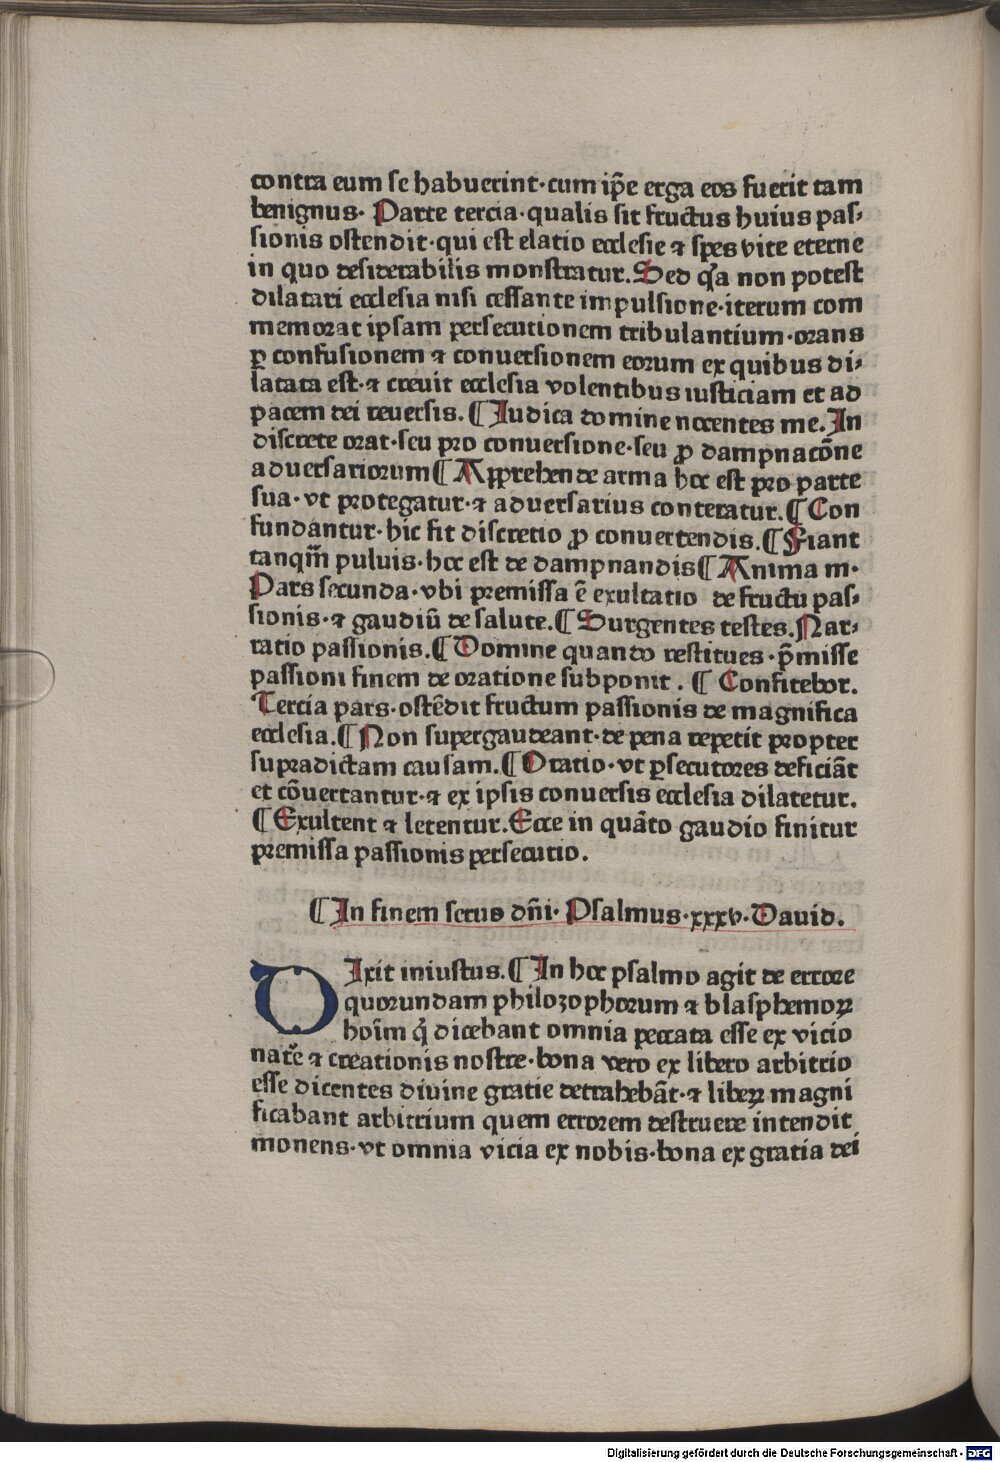 contra eum se habuerint·cum ip̄e erga eos fuerit tam
benignus· Parte tercia·qualis sit fructus huius pas⸗
sionis ostendit·qui est elatio ecclesie ⁊ spes vite eterne
in quo desiderabilis monstratur.Sed qͥa non potest
dilatari ecclesia nisi cessante impulsione·iterum com
memorat ipsam persecutionem tribulantium·orans
ꝓ confusionem ⁊ conuersionem eorum ex quibus di⸗
latata est·⁊ creuit ecclesia volentibus iusticiam et ad
pacem dei reuersis.¶Iudica domine nocentes me.In
discrete orat·seu pro conuersione·seu ꝓ dampnacōne
aduersariorum¶Apprehende arma hoc est pro parte
sua·vt protegatur·⁊ aduersarius conteratur.¶Con
fundantur·hic fit discretio ꝓ conuertendis.¶Fiant
tanqm̄ puluis·hoc est de dampnandis¶Anima m·
Pars secunda·vbi premissa ē exultatio de fructu pas⸗
sionis·⁊ gaudiū de salute.¶Surgentes testes.Nar⸗
ratio passionis.¶Domine quando restitues·p̄misse
passioni finem de oratione subponit.¶Confitebor.
Tercia pars·ostēdit fructum passionis de magnifica
ecclesia.¶Non supergaudeant·de pena repetit propter
supradictam causam.¶Oratio·vt ꝑsecutores deficiāt
et cōuertantur·⁊ ex ipsis conuersis ecclesia dilatetur.
¶Exultent ⁊ letentur.Ecce in quāto gaudio finitur
premissa passionis persecutio.
¶In finem seruo dn̄i·Psalmus·xxxv·Dauid.
DIxit iniustus.¶In hoc psalmo agit de errore
quorundam philozophorum ⁊ blasphemoꝝ
hoīm qͥ dicebant omnia peccata esse ex vicio
nature ⁊ creationis nostre·bona vero ex libero arbitrio
esse dicentes diuine gratie detrahebāt·⁊ liberꝝ magni
ficabant arbitrium quem errorem destruere intendit
monens·vt omnia vicia ex nobis·bona ex gratia dei
Digitalisierung gefördert durch die Deutsche Forschungsgemeinschaft - DFG